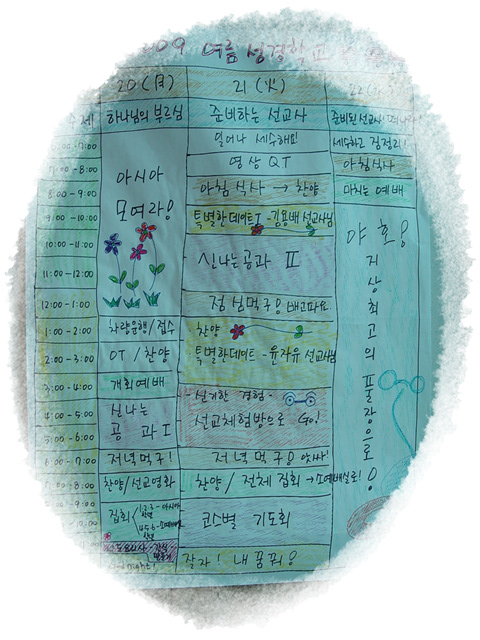 여름 성경학교
20(月) 21(火)
하나님의 부르심 준비하는 선교사
일어나 세수해요! 세수하고 집정리!
7:00-8:00 영상 QT 아침식사
8:00-9:00 아침식사 → 찬양 마치는 예배
9:00-10:00 특별한데이트Ⅰ-김용배 선교사님
아시아
모여라!
10:00-11:00 신나는공과 Ⅱ
11:00-12:00
12:00-1:00 점심먹구! 배고파요
1:00-2:00 차량운행/접수 찬양
2:00-3:00 OT / 찬양 특별한데이트-윤자유 선교사님
3:00-4:00 개회예배 -신기한 경험-
4:00-5:00 신나는 선교체험방으로 Go!
5:00-6:00 공과Ⅰ
6:00-7:00 저녁먹구! 저녁먹구!
찬양/선교영화 찬양/전체 집회
집회 코스별 기도회
잘자! 내꿈꿔!
야호! 지상최고의 풀장으로!